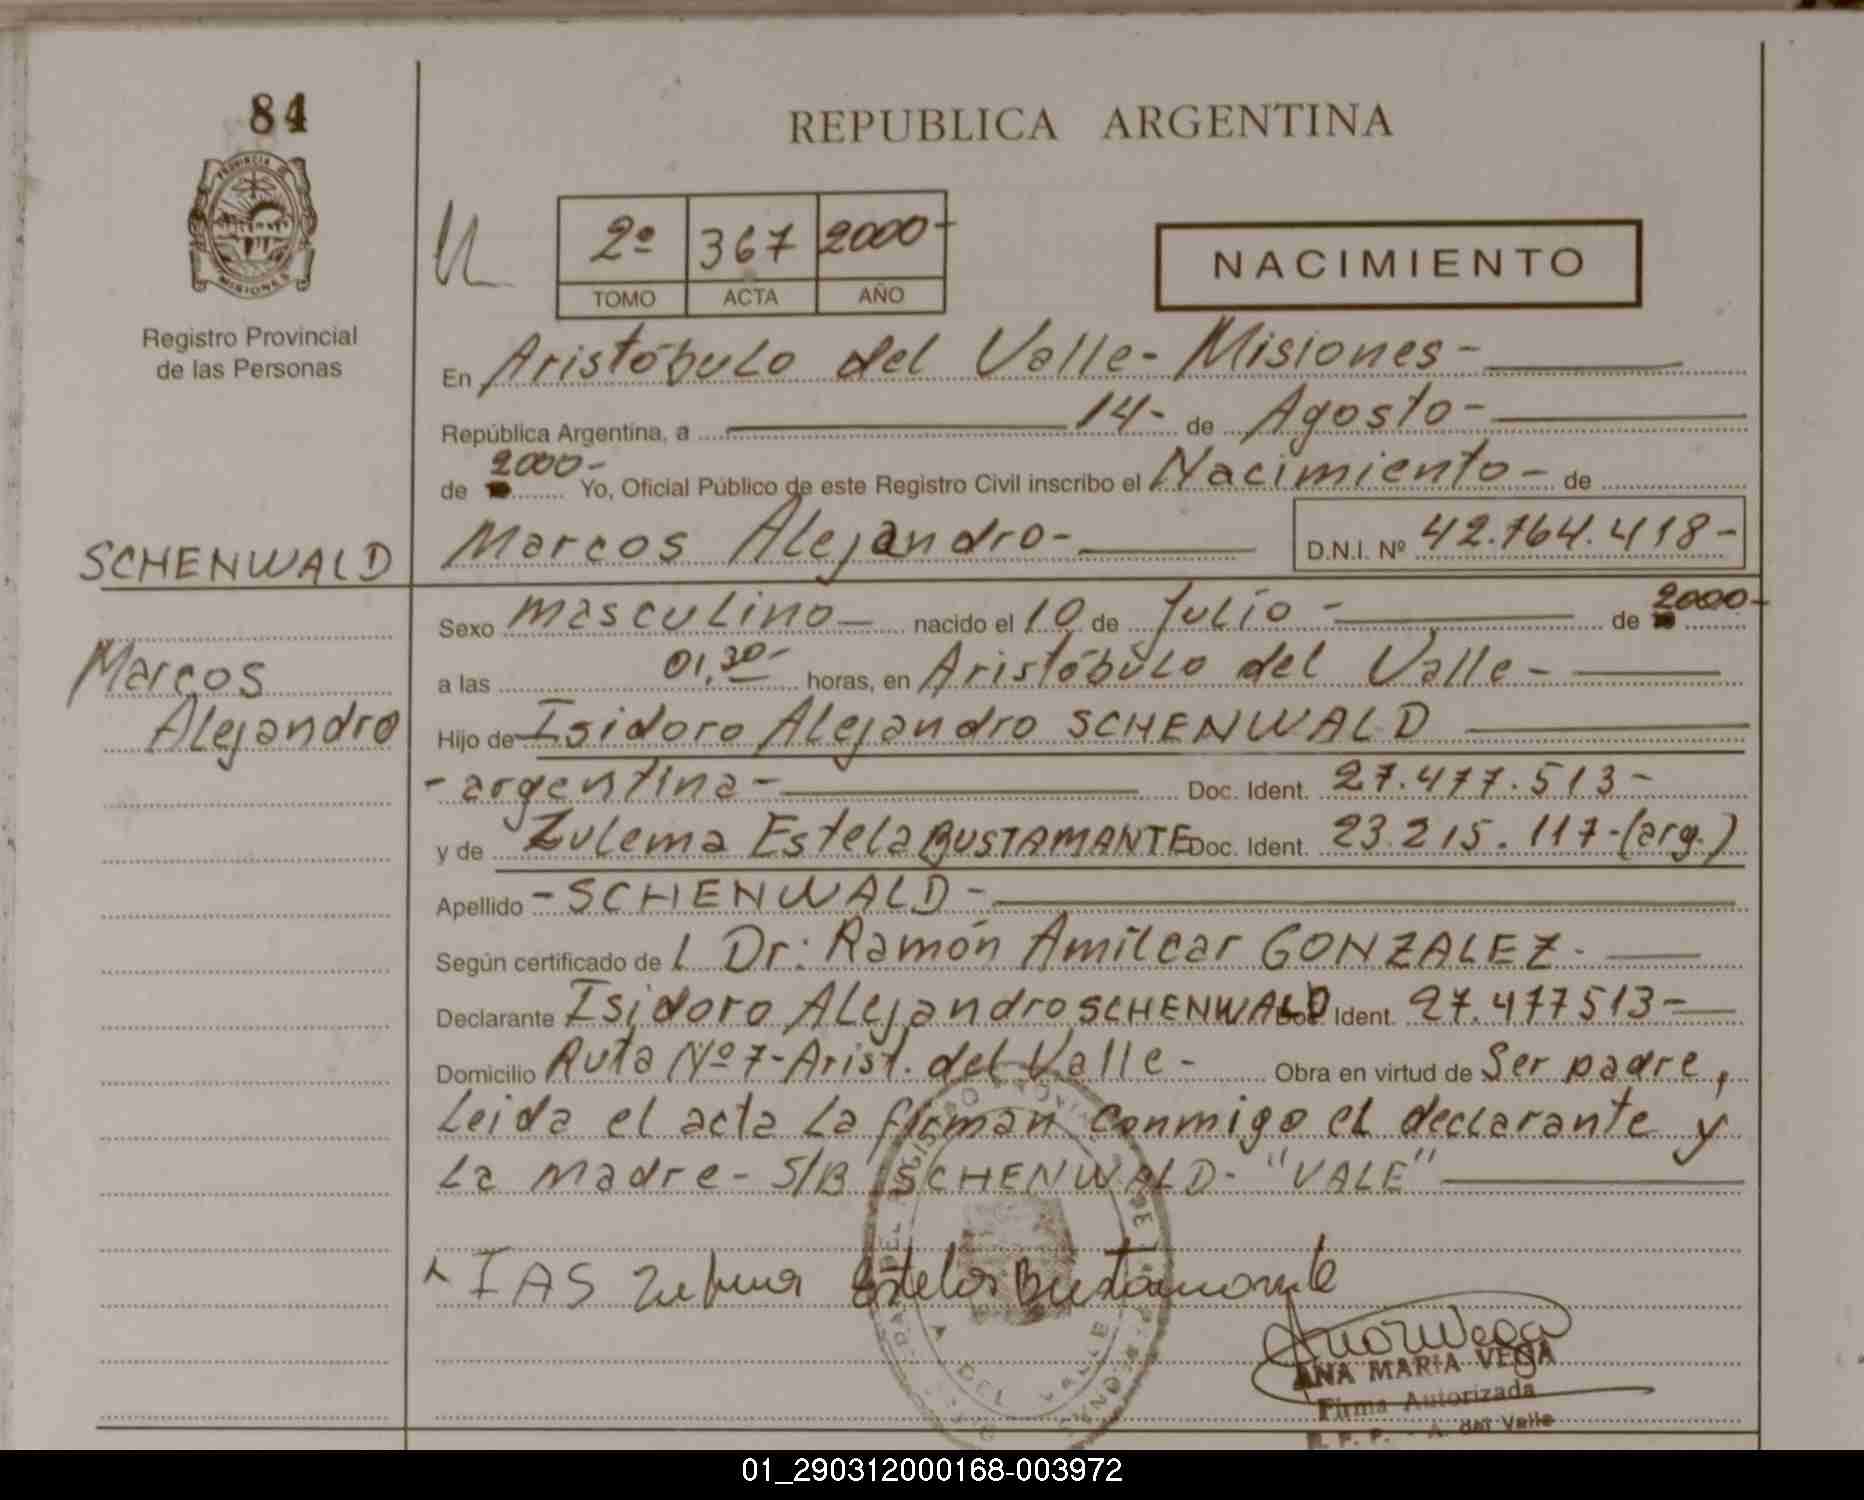 84
REPUBLICA ARGENTINA
PROVINCIA DE
MISIONES
Registro Provincial
de las Personas
2º 367 2000-
TOMO ACTA AÑO
NACIMIENTO
En Aristóbulo del Valle- Misiones-
República Argentina, a 14- de Agosto-
de 2000- Yo, Oficial Público de este Registro Civil inscribo el Nacimiento- de
SCHENWALD
Marcos Alejandro- D.N.I. Nº 42.764.418-
Marcos
Alejandro
Sexo masculino- nacido el 10 de Julio - de 2000-
a las 01,30- horas, en Aristóbulo del Valle-
Hijo de Isidoro Alejandro SCHENWALD
-argentina- Doc. Ident. 27.477.513-
y de Zulema Estela BUSTAMANTE Doc. Ident. 23.215.117-(arg.)
Apellido -SCHENWALD-
Según certificado de l Dr: Ramón Amilcar GONZALEZ.
Declarante Isidoro Alejandro SCHENWALD Doc. Ident. 27.477513-
Domicilio Ruta Nº7-Arist. del Valle- Obra en virtud de Ser padre,
Leida el acta La firman conmigo el declarante y
La madre- S/B SCHENWALD- "VALE"
IAS Zulema Estela Bustamante
ANA MARIA VEGA
Firma Autorizada
R. P. P. - A. del Valle
01_290312000168-003972